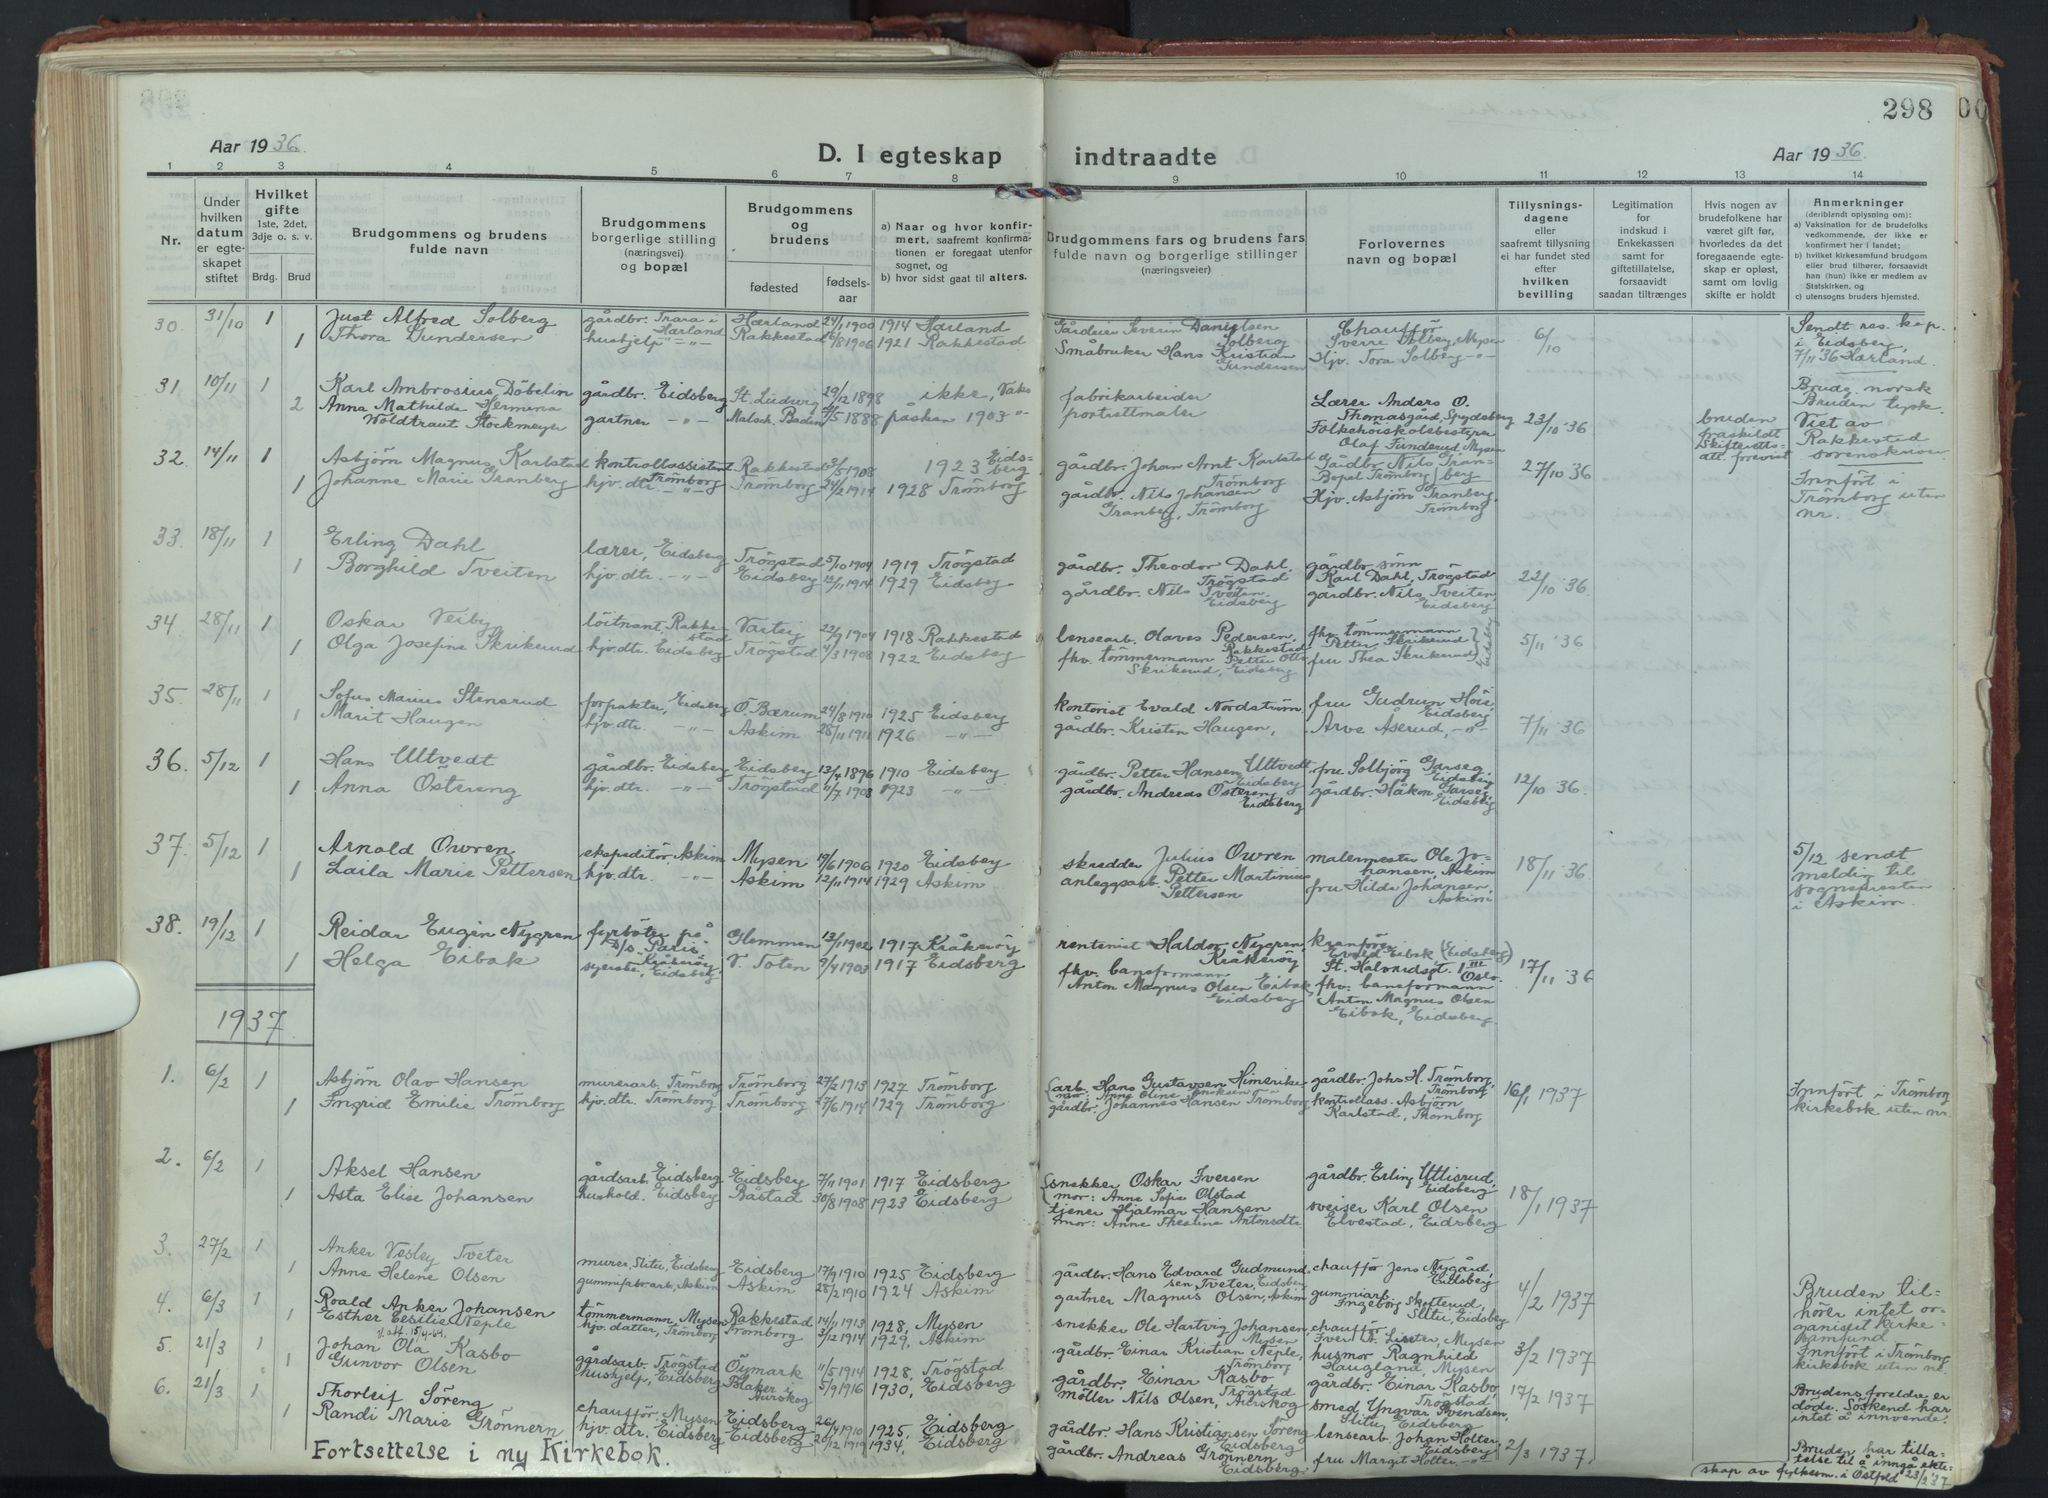 298
Aar 1936.
D. I egteskap indtraadte
Aar 1936
1 2 3 4 5 6 7 8 9 10 11 12 13 14
Nr.
Under hvilken datum er egteskapet stiftet
Hvilket gifte 1ste, 2det, 3dje o. s. v.
Brdg. Brud
Brudgommens og brudens fulde navn
Brudgommens borgerlige stilling (næringsvei) og bopæl
Brudgommens og brudens
fødested
fødselsaar
a) Naar og hvor konfirmert, saafremt konfirmationen er foregaat utenfor sognet, og
b) hvor sidst gaat til alters.
Brudgommens fars og brudens fars fulde navn og borgerlige stillinger (næringsveier)
Forlovernes navn og bopæl
Tillysningsdagene eller saafremt tillysning ei har fundet sted efter hvilken bevilling
Legitimation for indskud i Enkekassen samt for giftetillatelse, forsaavidt saadan tiltrænges
Hvis nogen av brudefolkene har været gift før, hvorledes da det foregaaende egteskap er opløst, samt om lovlig skifte er holdt
Anmerkninger (deriblandt oplysning om):
a) Vaksination for de brudefolks vedkommende, der ikke er konfirmert her i landet;
b) hvilket kirkesamfund brudgom eller brud tilhører, forsaavidt han (hun) ikke er medlem av Statskirken, og
c) utensogns bruders hjemsted.
30. 31/10 1 Just Alfred Solberg gårdbr. Trara i Hærland Hærland 24/1 1900 1914 Hærland Gårdeier Severin Danielsen Solberg Chauffør Sverre Solberg, Mysen 6/10 Sendt res. kap. i Eidsberg, 7/11 '36 Hærland.
1 Thora Gundersen hushjelp -"- Rakkestad 6/8 1906 1921 Rakkestad Småbruker Hans Kristian Gundersen Hjv. Tora Solberg -"-
31 10/11 1 Karl Ambrosius Döbelin gårdbr. Eidsberg St. Ludwig 29/12 1898 ikke, Vaks. fabrikarbeider Lærer Anders O. Thomasgård, Spydeberg 23/10 '36 bruden fraskildt Skifteretts att. forevist Brudg. norsk Bruden tysk. Viet av Rakkestad sorenskriver
2 Anna Mathilde Hermina Woldtraut Stockmeyer gartner -"- Malsch, Baden 21/5 1888 påsken 1903 -"- portrettmaler Folkehøiskolebestyrer Olaf Funderud, Mysen
32. 14/11 1 Asbjörn Magnus Karlstad kontrollassistent Trömborg Rakkestad 3/5 1908 1923 Eidsberg gårdbr. Johan Arnt Karlstad Trömborg Gårdbr. Nils Granberg Bopel Trömborg og 27/10 36 Innfört i Trömborg uten nr.
1 Johanne Marie Granberg hjv. dtr. -"- Trömborg 24/2 1914 1928 Trömborg gårdbr. Nils Johansen Granberg, Trömborg Hjv. Asbjörn Granberg, Trömborg
33. 18/11 1 Erling Dahl lærer, Eidsberg Trögstad 5/10 1904 1919 Trögstad gårdbr. Theodor Dahl, Trögstad gårdbr. sönn Karl Dahl, Trögstad 22/10 36.
1 Borghild Tveiten hjv. dtr. -"- Eidsberg 12/11 1914 1929 Eidsberg gårdbr. Nils Tveiten, Eidsberg gårdbr. Nils Tveiten, Eidsberg
34. 28/11 1 Oskar Veiby löitnant, Rakkestad Varteig 22/9 1904 1918 Rakkestad lensearb. Olaves Pedersen, Rakkestad fhv. tömmermann Petter Skrikerud Eidsberg 5/11 '36
1 Olga Josefine Skrikerud hjv. dtr. Eidsberg Trögstad 4/3 1908 1922 Eidsberg fhv. tömmermann Petter Otto Skrikerud, Eidsberg fru Thea Skrikerud
35. 28/11 1 Sofus Marius Stensrud forpakter, Eidsberg Ö. Bærum 24/8 1910 1925 Eidsberg kontorist Evald Nordström fru Gudrun Höie, Eidsberg 7/11 36
1 Marit Haugen hjv. dtr. -"- Askim 25/11 1911 1926 -"- gårdbr. Kristen Haugen, Arve Åserud, -"-
36. 5/12 1 Hans Ultvedt gårdbr. Eidsberg Eidsberg 13/4 1896 1910 Eidsberg gårdbr. Petter Hansen Ultvedt Eidsberg fru Solbjörg Garseg, Eidsberg 12/10 36.
1 Anna Östereng hjv. dtr. -"- Trögstad 11/7 1908 1923 -"- gårdbr. Andreas Östereng Eidsberg gårdbr. Håkon Garseg, Eidsberg
37. 5/12 1 Arnold Owren ekspeditör, Askim Mysen 19/6 1906 1920 Eidsberg skredder Julius Owren malermester Ole Johansen, Askim 18/11 36 5/12 sendt melding til sognepresten i Askim.
1 Laila Marie Pettersen hjv. dtr. -"- Askim 12/11 1914 1929 Askim anleggsarb. Petter Martinius Pettersen fru Hilda Johansen, Askim
38. 19/12 1 Reidar Eugen Nygren fyrböter på D/s Paris. Kråkeröy Glemmen 13/11 1902 1917 Kråkeröy rentenist Haldor Nygren, Kråkeröy kranförer Evald Eibak (Eidsberg) St. Halvardsgt. 1 III Oslo. 17/11 36
1 Helga Eibak syerske, Eidsberg V. Toten 9/4 1903 1917 Eidsberg fhv. baneformann Anton Magnus Olsen Eibak Eidsberg fhv. baneformann Anton Magnus Olsen Eibak, Eidsberg
1937
1. 6/2 1 Asbjörn Olav Hansen murerarb. Trömborg Trömborg 27/2 1913 1927 Trömborg arb. Hans Gustavsen Himerike mor: Anne Oline gårdbr. Johs H. Trömborg, Trömborg 16/1 1937 Innfört i Trömborg kirkebok uten nr.
1 Ingrid Emilie Trömborg hjv. dtr. Trömborg Trömborg 27/6 1914 1929 Trömborg gårdbr. Johannes Hansen Trömborg kontrollass. Asbjörn Karlstad, Trömborg
2. 6/2 1 Aksel Hansen gårdsarb. Eidsberg Eidsberg 7/11 1901 1917 Eidsberg snekker Oskar Iversen mor: Anne Sofie Olstad gårdbr. Erling Utlisrud, Eidsberg 18/1 1937
1 Asta Elise Johansen hushold. Eidsberg Båstad 30/8 1908 1923 Eidsberg tjener Hjalmar Hansen mor: Anne Thestine Antonsdtr sveiser Karl Olsen Elvestad, Eidsberg
3. 27/2 1 Anker Vesley Tveter murer, Slitu, Eidsberg Eidsberg 17/9 1910 1925 Eidsberg gårdbr. Hans Edvard Gudmundsen Tveter, Eidsberg chaufför Jens Nygård, Eidsberg 4/2 1937
1 Anne Helene Olsen gummifabr.arb, Askim Askim 28/2 1910 1924 Askim gartner Magnus Olsen, Askim gummiarb. Ingeborg Skofterud, Slitu, Eidsberg Bruden tilhörer intet organisert kirkesamfund
4. 6/3 1 Roald Anker Johansen tömmermann, Mysen Rakkestad 14/11 1913 1928, Mysen snekker Ole Hartvig Johansen, Mysen chaufför Iver A. Liseter, Mysen 3/2 1937 Innfört i Trömborg kirkebok uten nr.
1 Esther Cecilie Neple hjv. datter, Trömborg Tromborg 3/12 1914 1929. Askim gårdbr. Einar Kristian Neple, Trömborg husmor Ragnhild Haugland, Mysen
V. att. 15/4-64.
5. 21/3 1 Johan Ola Kasbo gårdsarb. Trögstad Öymark 11/5 1914 1928, Trögstad gårdbr. Einar Kasbo Trögstad gårdbr. Einar Kasbo, Trögstad 17/2 1937 Brudens foreldre er döde. Söskend har intet å innvende.
1 Gunvor Olsen hushjelp, Eidsberg Blaker Aurskog 5/9 1916 1930, Eidsberg möller Nils Olsen, Aurskog smed Yngvar Svendsen, Slitu, Eidsberg
6. 21/3 1 Thorleif Söreng chaufför, Mysen Eidsberg 26/4 1910 1925, Eidsberg gårdbr. Hans Kristiansen Söreng Eidsberg lensearb. Johan Holter, Eidsberg 2/3 1937. Bruden har tillatelse til å inngå ekteskap av fylkesm. i Östfold 23/2 37
1 Randi Marie Grönnern hjv. dtr. Eidsberg Eidsberg 20/12 1919 1934, Eidsberg gårdbr. Andreas Grönnern Eidsberg fru Margit Holter -"-
Fortsettelse i ny Kirkebok.